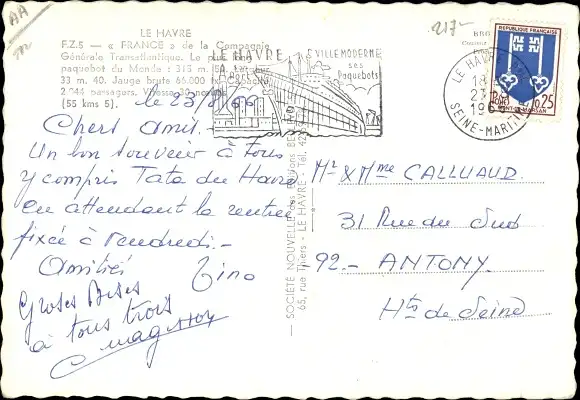 AA
LE HAVRE
F.Z.5 — « FRANCE » de la Compagnie
Générale Transatlantique. Le plus long
paquebot du Monde : 315 m.
33 m. 40. Jauge brute 66.000 tx
2.044 passagers. Vitesse 30
(55 kms 5).
le 23/8/66
Chers amis -
Un bon souvenir à tous
y compris Tata du Havre
en attendant la rentrée
fixée à Vendredi. -
Amitiés Tino
Groses Bises
à tous trois
SOCIÉTÉ NOUVELLE des Éditions
65, rue Thiers - LE HAVRE - Tél. 42
LE HAVRE
VILLE MODERNE
ses
Paquebots
217-
REPUBLIQUE FRANÇAISE
0,25
MONT-DE-MARSAN
LE HAVRE
18
23
1966
SEINE-MARITIME
Mr & Mme CALLUAUD.
31 Rue du Sud
92.- ANTONY.
Hts de Seine